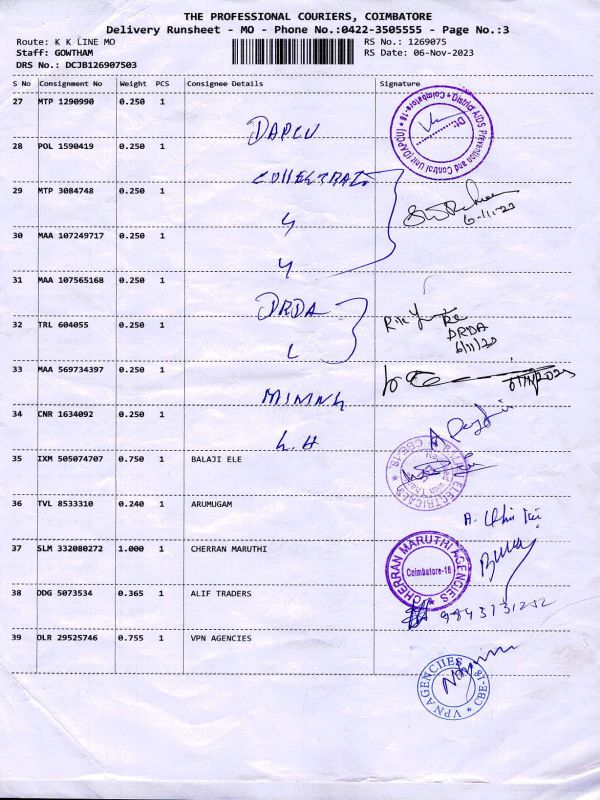 THE PROFESSIONAL COURIERS, COIMBATORE
Delivery Runsheet - MO - Phone No.:0422-3505555 - Page No.:3
Route: K K LINE MO RS No.: 1269075
Staff: GOWTHAM RS Date: 06-Nov-2023
DRS No.: DCJB126907503
S No Consignment No Weight PCS Consignee Details Signature
27 MTP 1290990 0.250 1 DAPCU
Dt. AIDS Prevention and Control Unit (DAPCU) Coimbatore-18
28 POL 1590419 0.250 1
29 MTP 3084748 0.250 1
6-11-23
30 MAA 107249717 0.250 1
31 MAA 107565168 0.250 1 DRDA
32 TRL 604055 0.250 1
DRDA
6/11/23
33 MAA 569734397 0.250 1
34 CNR 1634092 0.250 1
35 IXM 505074707 0.750 1 BALAJI ELE
36 TVL 8533310 0.240 1 ARUMUGAM
37 SLM 332080272 1.000 1 CHERRAN MARUTHI
CHERRAN MARUTHI AGENCIES
Coimbatore-18
38 DDG 5073534 0.365 1 ALIF TRADERS
39 DLR 29525746 0.755 1 VPN AGENCIES
VPN AGENCIIES CBE-18